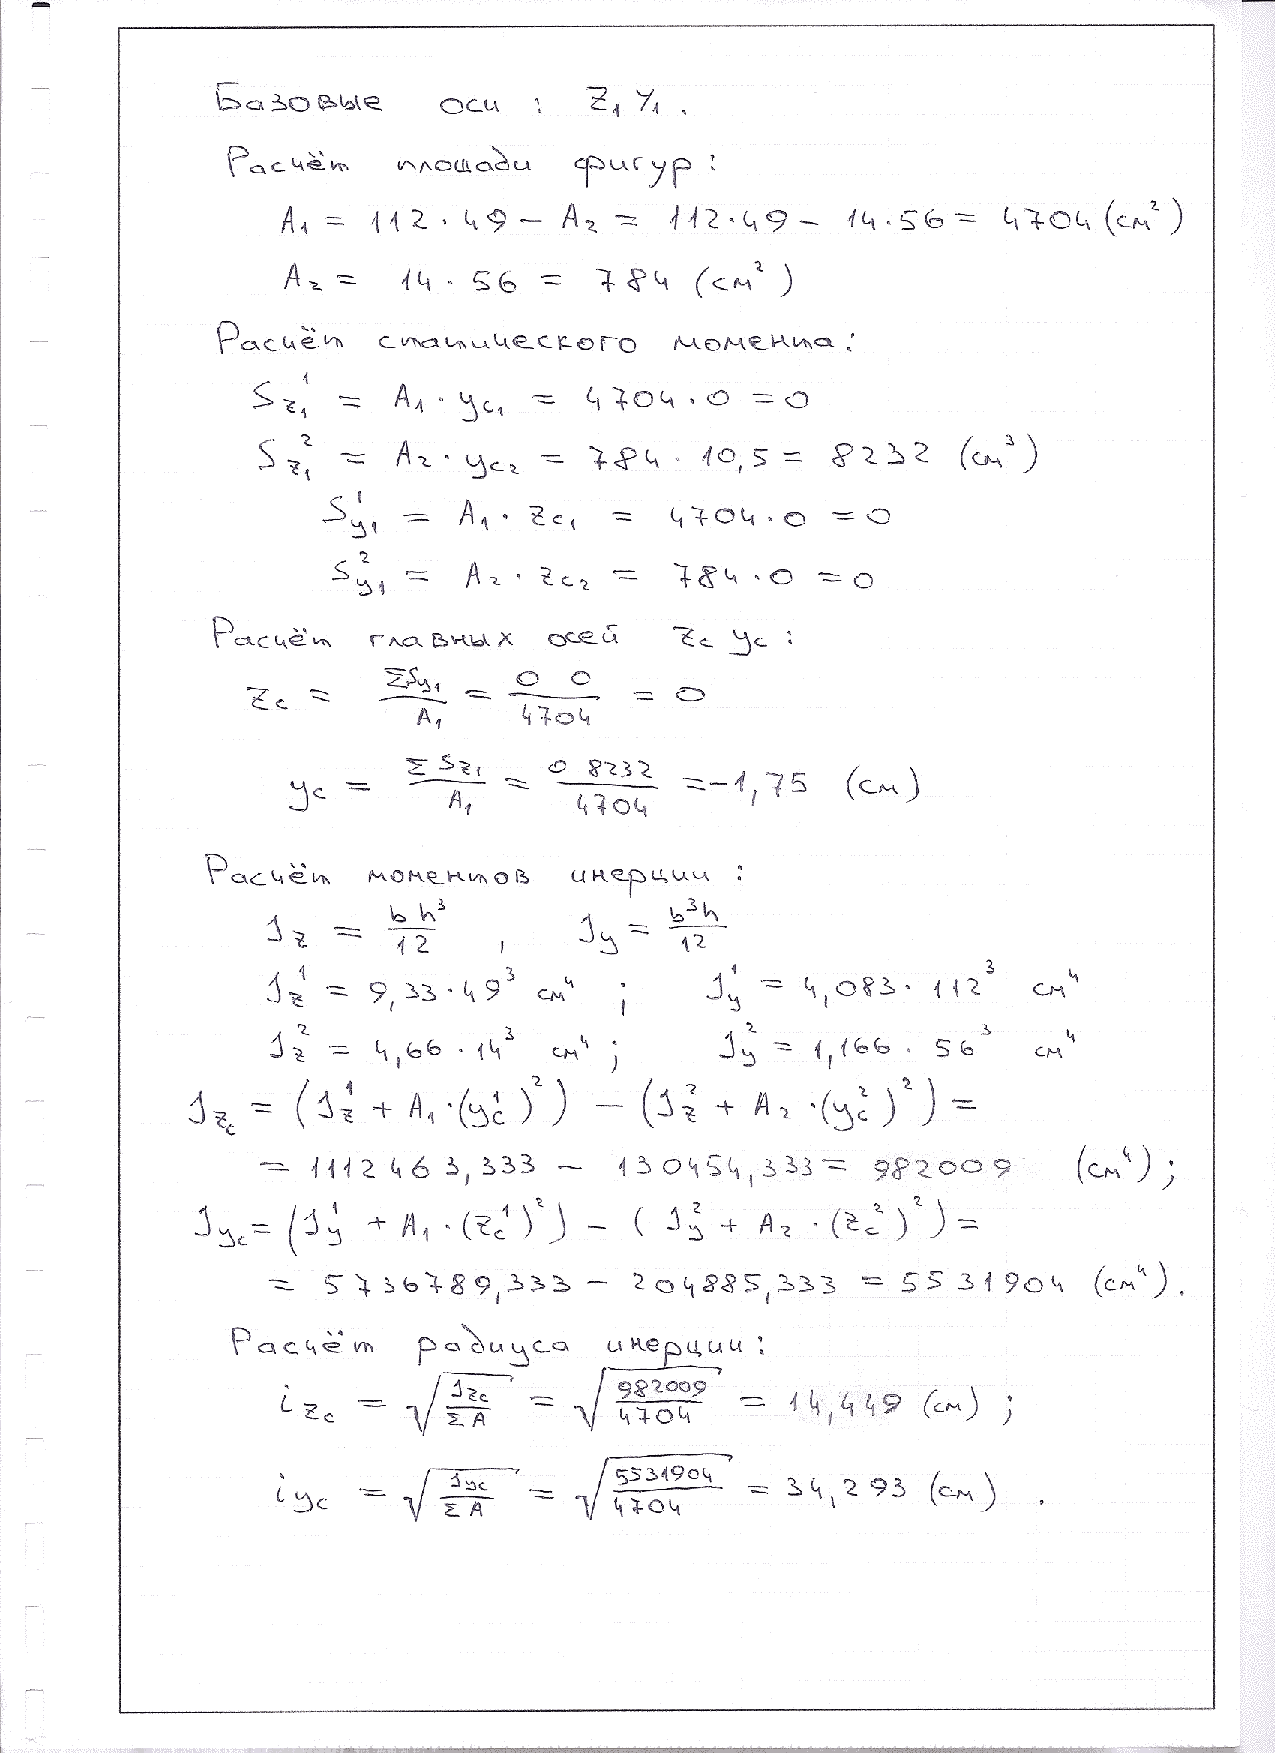 Базовые оси : Z₁ Y₁ .
Расчёт площади фигур :
A₁ = 112 · 49 − A₂ = 112 · 49 − 14 · 56 = 4704 (см²)
A₂ = 14 · 56 = 784 (см²)
Расчёт статического момента :
S_z₁¹ = A₁ · y_c₁ = 4704 · 0 = 0
S_z₁² = A₂ · y_c₂ = 784 · 10,5 = 8232 (см³)
S_y₁¹ = A₁ · z_c₁ = 4704 · 0 = 0
S_y₁² = A₂ · z_c₂ = 784 · 0 = 0
Расчёт главных осей z_c y_c :
z_c = ΣS_y₁ / A₁ = 0 0 / 4704 = 0
y_c = ΣS_z₁ / A₁ = 0 8232 / 4704 = −1,75 (см)
Расчёт моментов инерции :
J_z = bh³ / 12 , J_y = b³h / 12
J_z¹ = 9,33 · 49³ см⁴ ; J_y¹ = 4,083 · 112³ см⁴
J_z² = 4,66 · 14³ см⁴ ; J_y² = 1,166 · 56³ см⁴
J_z_c = (J_z¹ + A₁ · (y_c¹)²) − (J_z² + A₂ · (y_c²)²) =
= 1112463,333 − 130454,333 = 982009 (см⁴) ;
J_y_c = (J_y¹ + A₁ · (z_c¹)²) − (J_y² + A₂ · (z_c²)²) =
= 5736789,333 − 204885,333 = 5531904 (см⁴) .
Расчёт радиуса инерции :
i_z_c = √(J_z_c / ΣA) = √(982009 / 4704) = 14,449 (см) ;
i_y_c = √(J_y_c / ΣA) = √(5531904 / 4704) = 34,293 (см) .